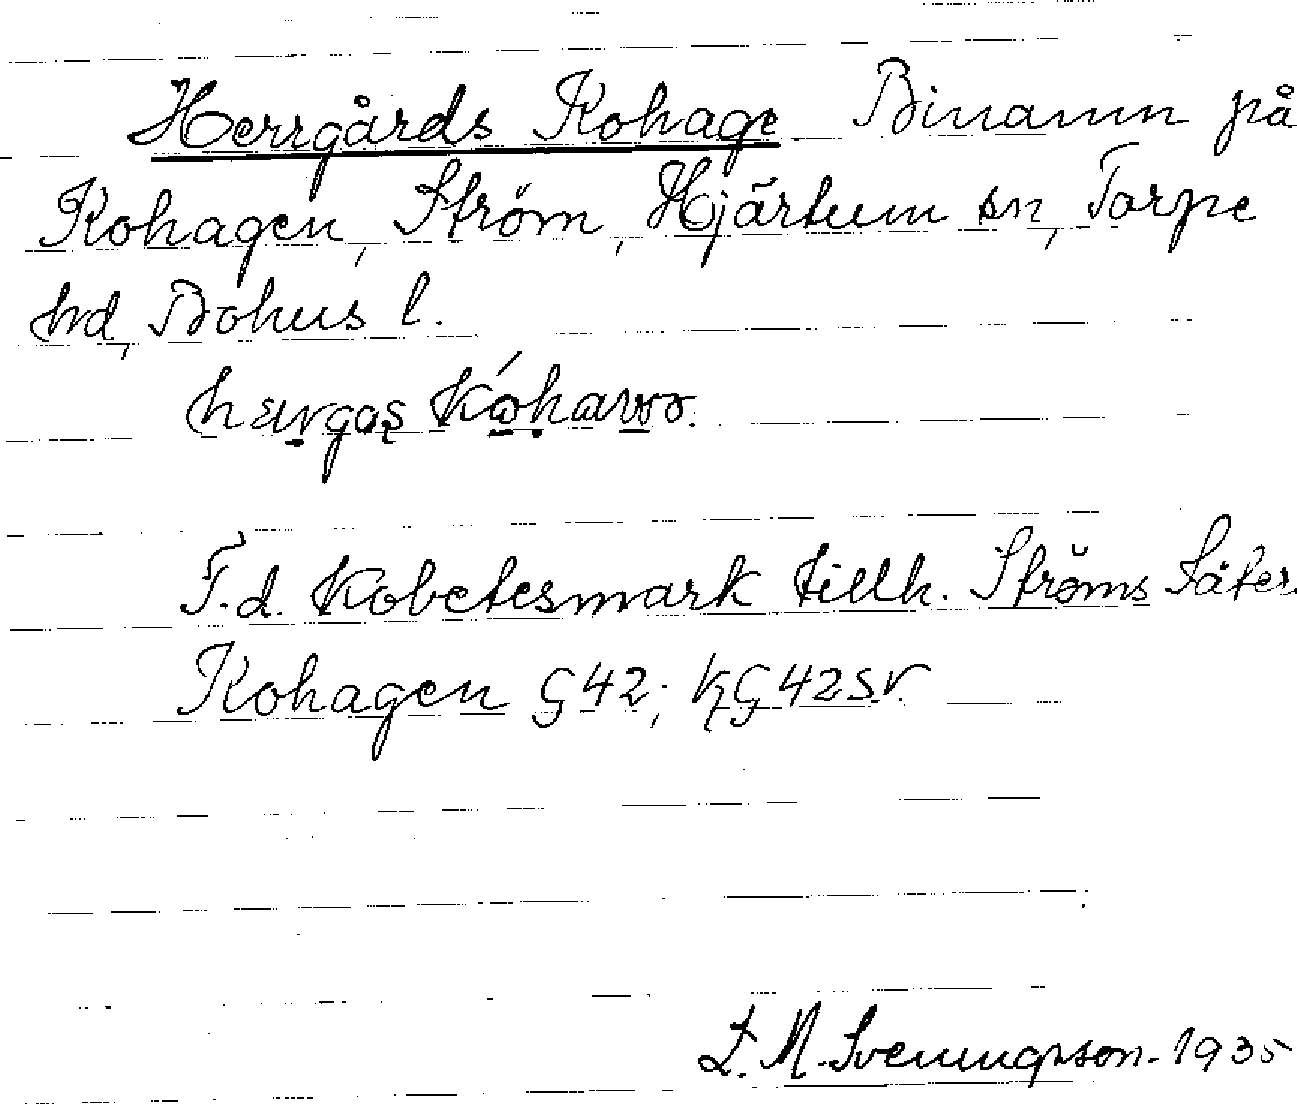 Herrgårds Kohage Binamn på
Kohagen, Ström, Hjärtum sn, Torpe
hd, Bohus l.
F.d. Kobetesmark tillh. Ströms Säter.
Kohagen G 42; KG 42 SV.
L. M. Svenungsson. 1935